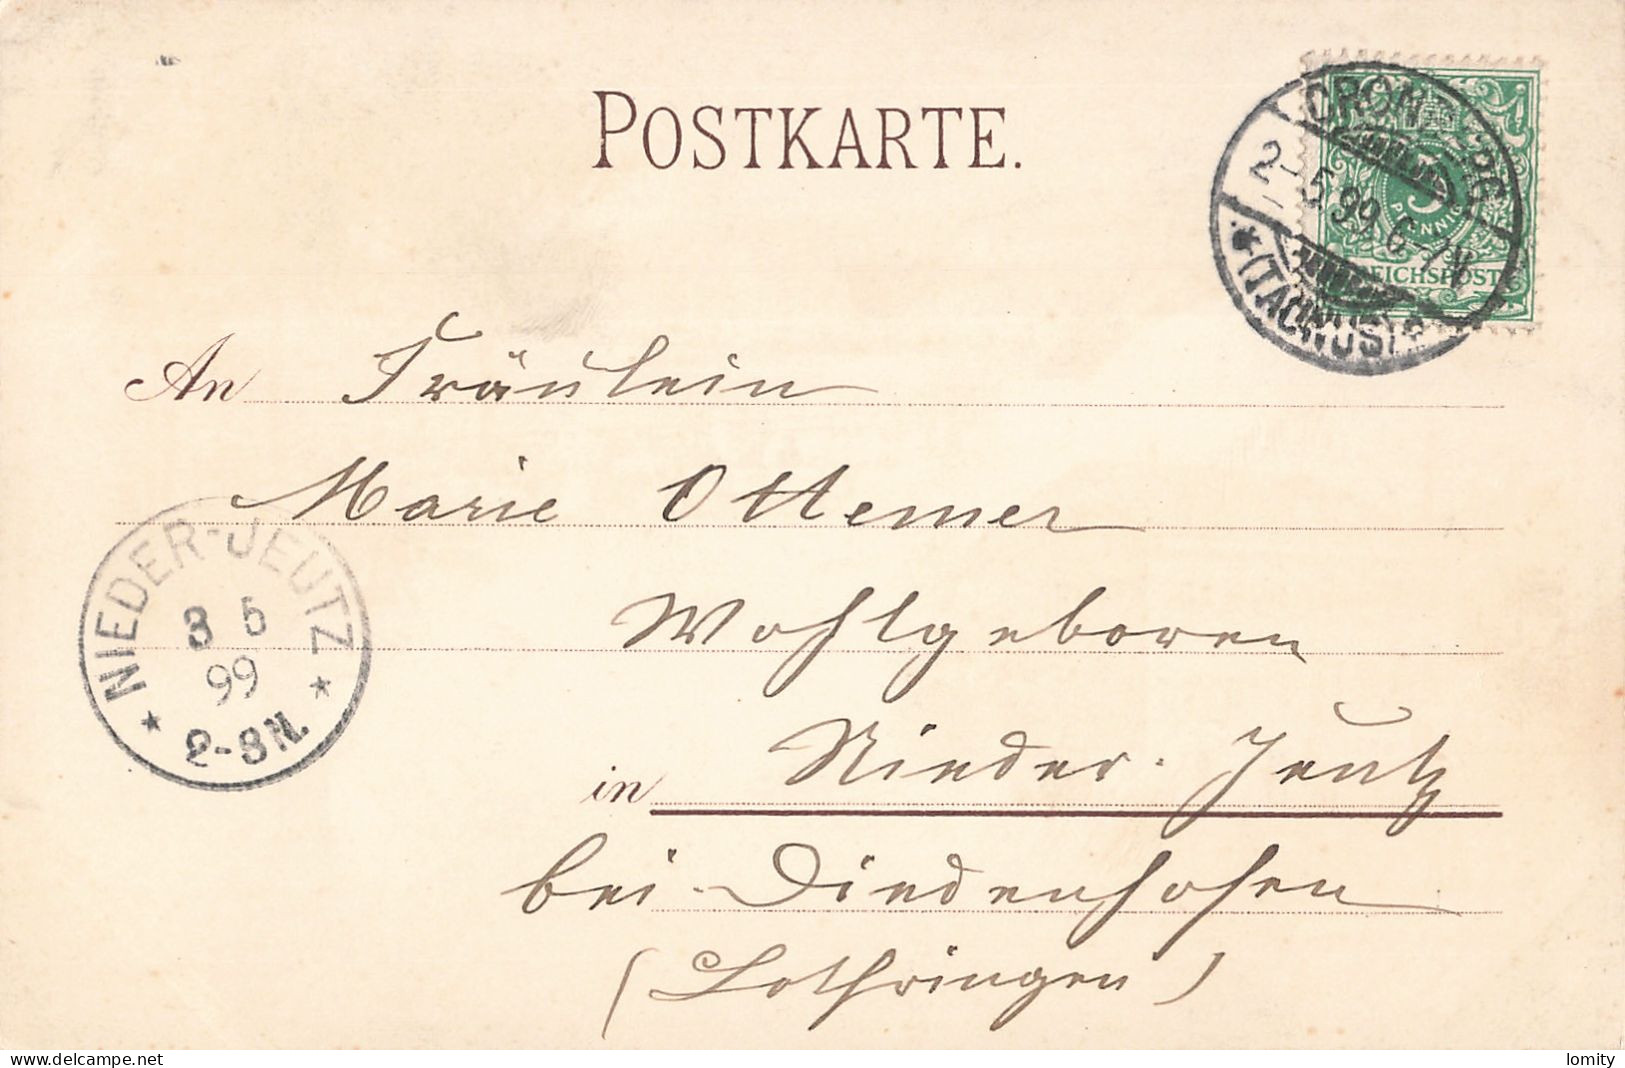 POSTKARTE.
CRONBERG
2-5.99.6-7V
*(TAUNUS)*
5
PFENNIG
REICHSPOST
An Fräulein
Marie Ottemer
Wohlgeboren
in Nieder-Jeutz
bei Diedenhofen
(Lothringen)
NIEDER-JEUTZ
3 5
99
2-3N.
delcampe.net
lomity